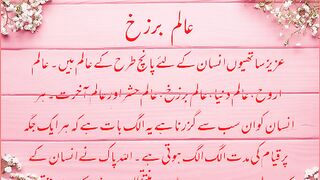 عالم برزخ
عزیز ساتھیوں انسان کے لئے پانچ طرح کے عالم ہیں۔ عالم
اروح، عالم دنیا، عالم برزخ، عالم حشر اور عالم آخرت۔ ہر
انسان کو ان سب سے گزرنا ہے یہ الگ بات ہے کہ ہر ایک جگہ
پر قیام کی مدت الگ الگ ہوتی ہے۔ اللہ پاک نے انسان کے